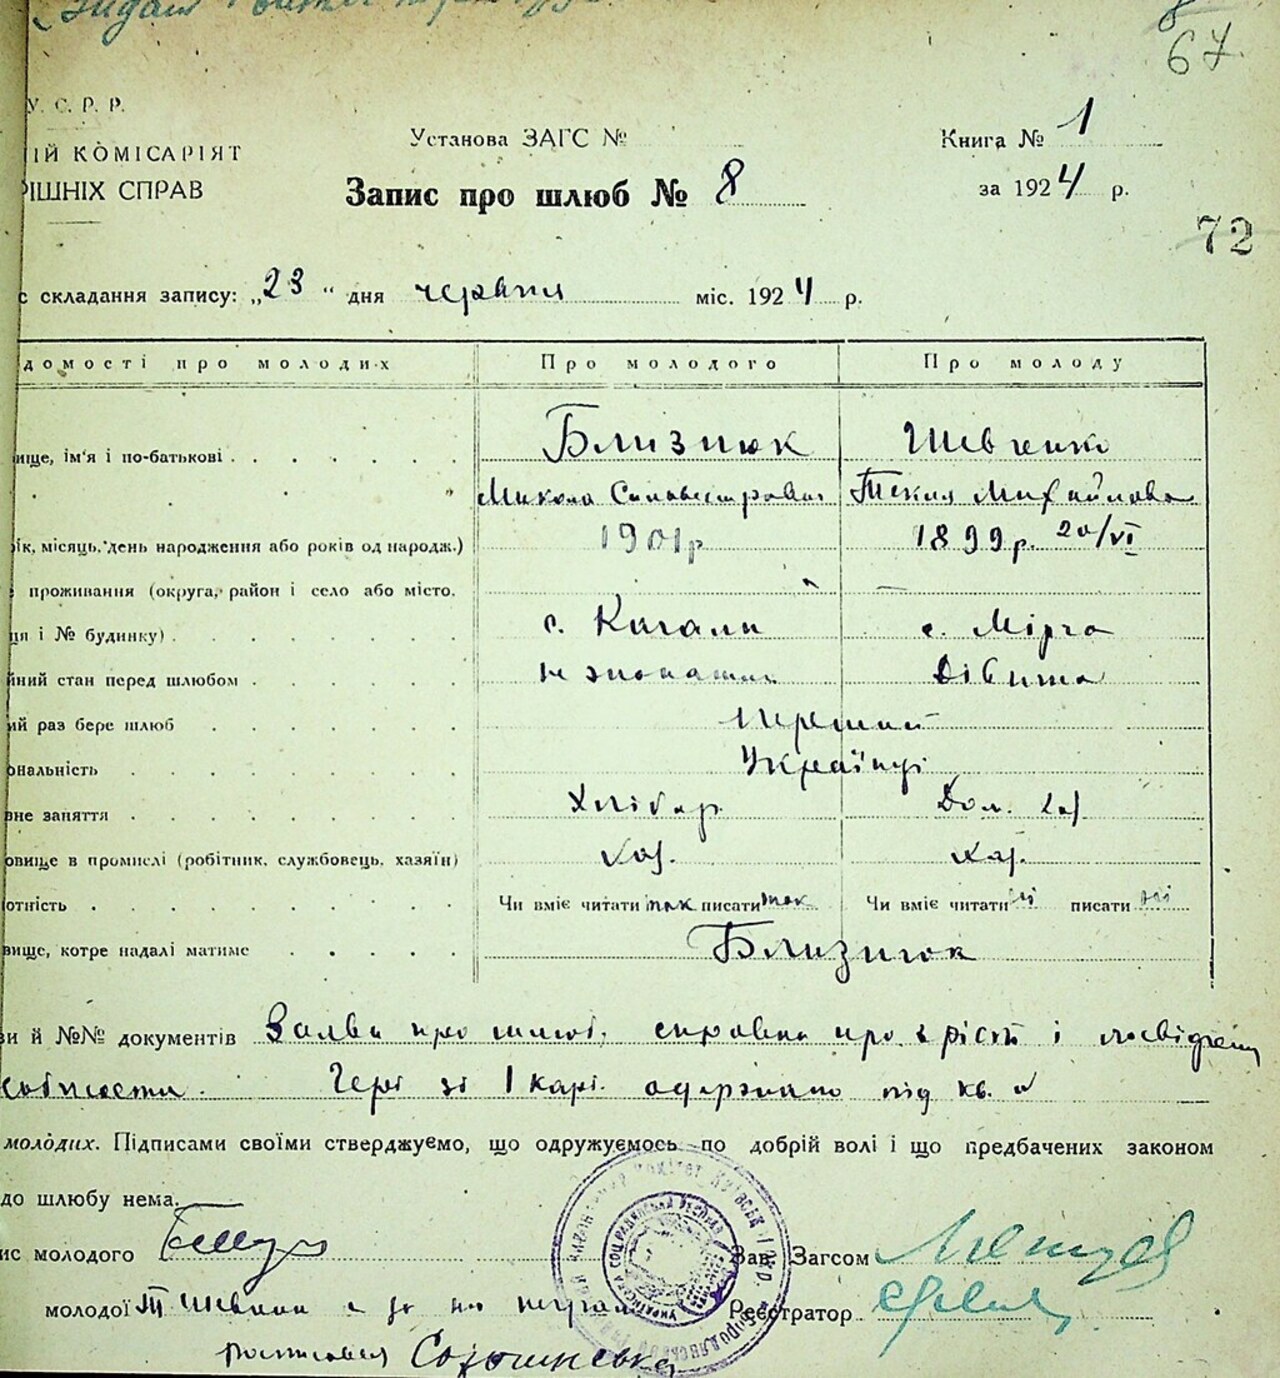 8
67.
У. С. Р. Р.
ІЙ КОМІСАРІЯТ
РІШНІХ СПРАВ
Установа ЗАГС №
Книга № 1
Запис про шлюб № 8
за 1924 р.
72
с складання запису: „23“ дня червня міс. 1924 р.
домості про молодих
Про молодого
Про молоду
вище, ім'я і по-батькові
Близнюк
Шевченко
Микола Сильвестрович
Текля Михайлова
рік, місяць, день народження або років од народж.)
1901р
1899р. 20/VI
проживання (округа, район і село або місто,
ця і № будинку)
с. Качали
с. Мірча
йний стан перед шлюбом
не жонатий
Дівиця
ий раз бере шлюб
Перший
ональність
Українці
вне заняття
Хлібор.
Дом. Хаз.
овище в промислі (робітник, службовець, хазяїн)
Хаз.
Хаз.
отність
Чи вміє читати так писати так
Чи вміє читати ні писати ні
вище, котре надалі матиме
Близнюк
зи й №№ документів Заява про шлюб, справка про зріст і посвідчен
собистости. Герб. зб. 1 карб. одержано під кв. №
молодих. Підписами своїми стверджуємо, що одружуємось по добрій волі і що предбачених законом
до шлюбу нема.
ис молодого
Зав. Загсом
молодої Т Шевченко а за не неграм
Реєстратор
росписалася